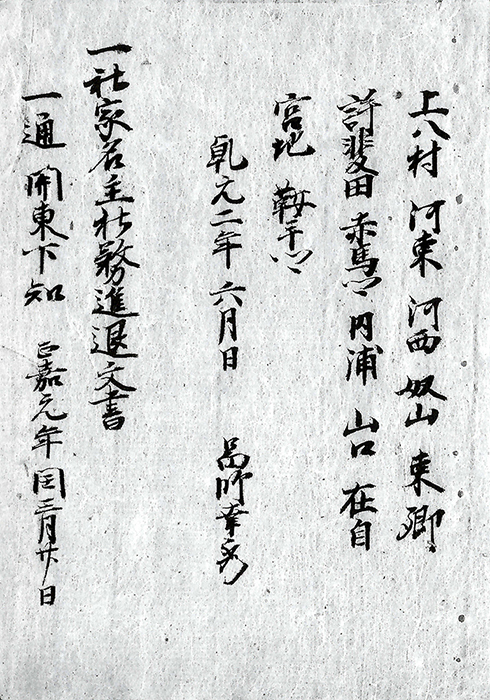 上八村 河東 河西 奴山 東郷
許斐田 赤馬〻 円浦 山口 在自
宮地 鞍手〻
乾元二年六月日
一社家名主社務進退文書
一通 関東下知 正嘉元年閏三月廿日